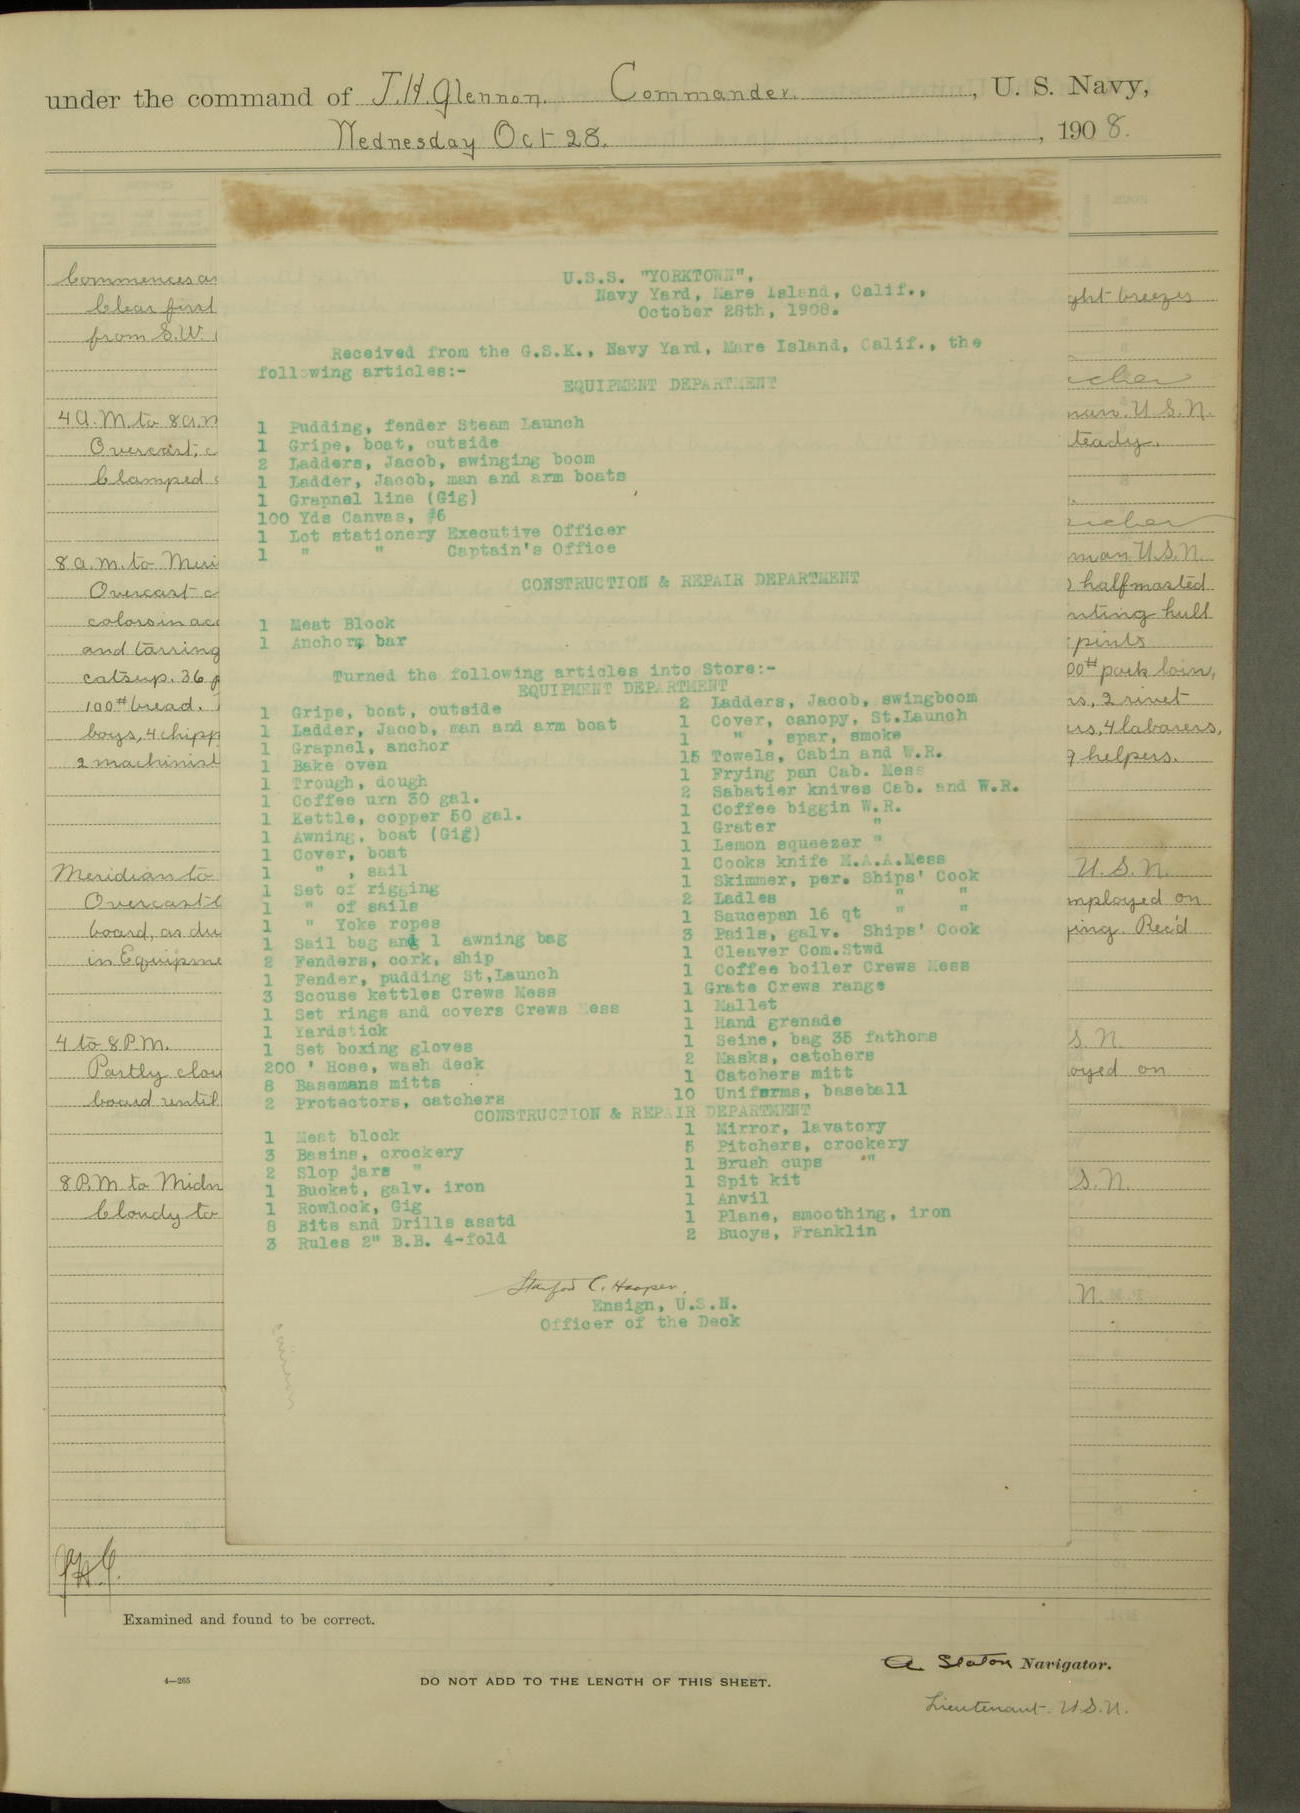 under the command of J.H. Glennon. Commander. , U. S. Navy,
Wednesday Oct 28. , 1908.
U.S.S. "YORKTOWN",
Navy Yard, Mare Island, Calif.,
October 28th, 1908.
Received from the G.S.K., Navy Yard, Mare Island, Calif., the
following articles:-
EQUIPMENT DEPARTMENT
1 Pudding, fender Steam Launch
1 Gripe, boat, outside
2 Ladders, Jacob, swinging boom
1 Ladder, Jacob, man and arm boats
1 Grapnel line (Gig)
100 Yds Canvas, #6
1 Lot stationery Executive Officer
1 " " Captain's Office
CONSTRUCTION & REPAIR DEPARTMENT
1 Meat Block
1 Anchor, bar
Turned the following articles into Store:-
EQUIPMENT DEPARTMENT
1 Gripe, boat, outside
1 Ladder, Jacob, man and arm boat
1 Grapnel, anchor
1 Bake oven
1 Trough, dough
1 Coffee urn 30 gal.
1 Kettle, copper 50 gal.
1 Awning, boat (Gig)
1 Cover, boat
1 " , sail
1 Set of rigging
1 " of sails
1 " Yoke ropes
1 Sail bag and 1 awning bag
2 Fenders, cork, ship
1 Fender, pudding St,Launch
3 Scouse kettles Crews Mess
1 Set rings and covers Crews Mess
1 Yardstick
1 Set boxing gloves
200 ' Hose, wash deck
8 Basemans mitts
2 Protectors, catchers
2 Ladders, Jacob, swingboom
1 Cover, canopy, St.Launch
1 " , spar, smoke
15 Towels, Cabin and W.R.
1 Frying pan Cab. Mess
2 Sabatier knives Cab. and W.R.
1 Coffee biggin W.R.
1 Grater "
1 Lemon squeezer "
1 Cooks knife M.A.A.Mess
1 Skimmer, per. Ships' Cook
2 Ladles " "
1 Saucepan 16 qt " "
3 Pails, galv. Ships' Cook
1 Cleaver Com.Stwd
1 Coffee boiler Crews Mess
1 Grate Crews range
1 Mallet
1 Hand grenade
1 Seine, bag 35 fathoms
2 Masks, catchers
1 Catchers mitt
10 Uniforms, baseball
CONSTRUCTION & REPAIR DEPARTMENT
1 Meat block
3 Basins, crockery
2 Slop jars "
1 Bucket, galv. iron
1 Rowlock, Gig
8 Bits and Drills asstd
3 Rules 2" B.B. 4-fold
1 Mirror, lavatory
5 Pitchers, crockery
1 Brush cups "
1 Spit kit
1 Anvil
1 Plane, smoothing, iron
2 Buoys, Franklin
Stanford C. Hooper.
Ensign, U.S.N.
Officer of the Deck
Commences
Clear first
from S.W.
4 A.M. to 8 A.M
Overcast,
Clamped
8 a.m. to Meri
Overcast
colors in acc
and tarring
catsup. 36
100# bread.
boys, 4 chipp
2 machinist
Meridian to
Overcast
board, as du
in Equipme
4 to 8 P.M.
Partly clou
board until
8 P.M to Midn
Cloudy to
ght breezes
man. U.S.N.
teady.
man. U.S.N.
halfmasted
nting hull
pints
00# pork loin,
rs, 2 rivet
ers, 4 laborers,
9 helpers.
U.S.N.
mployed on
ping. Rec'd
S.N.
oyed on
S.N.
N.
J.H.G.
Examined and found to be correct.
A Staton Navigator.
Lieutenant. U.S.N.
4—265
DO NOT ADD TO THE LENGTH OF THIS SHEET.